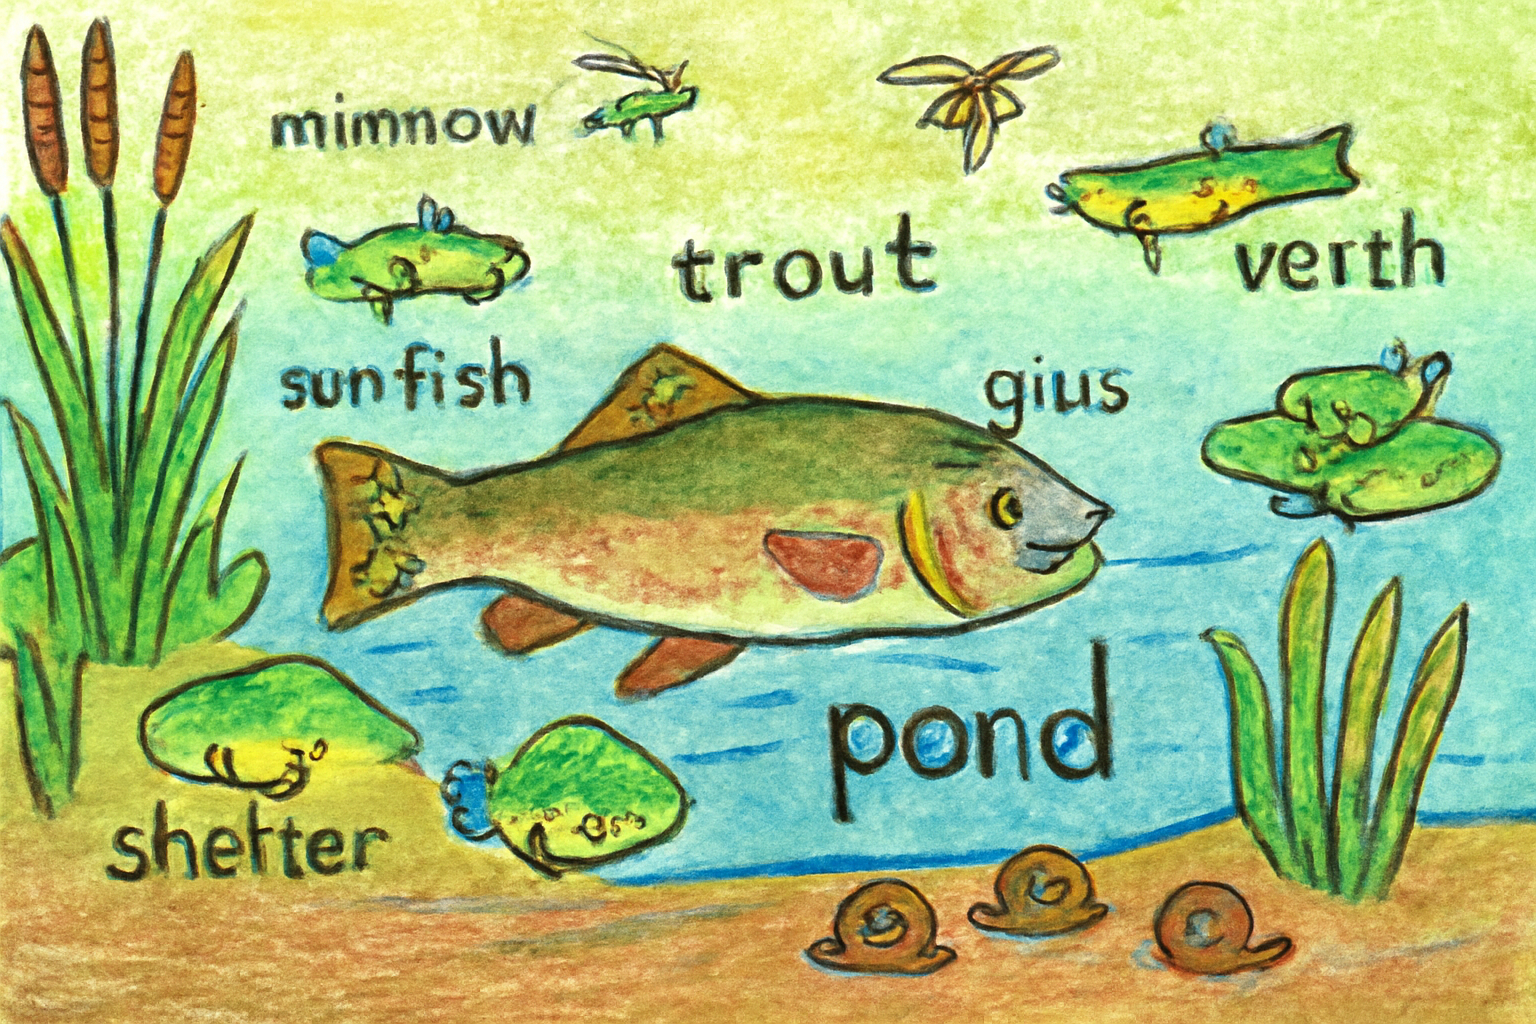 mimnow
trout
verth
sunfish
gius
pond
shetter